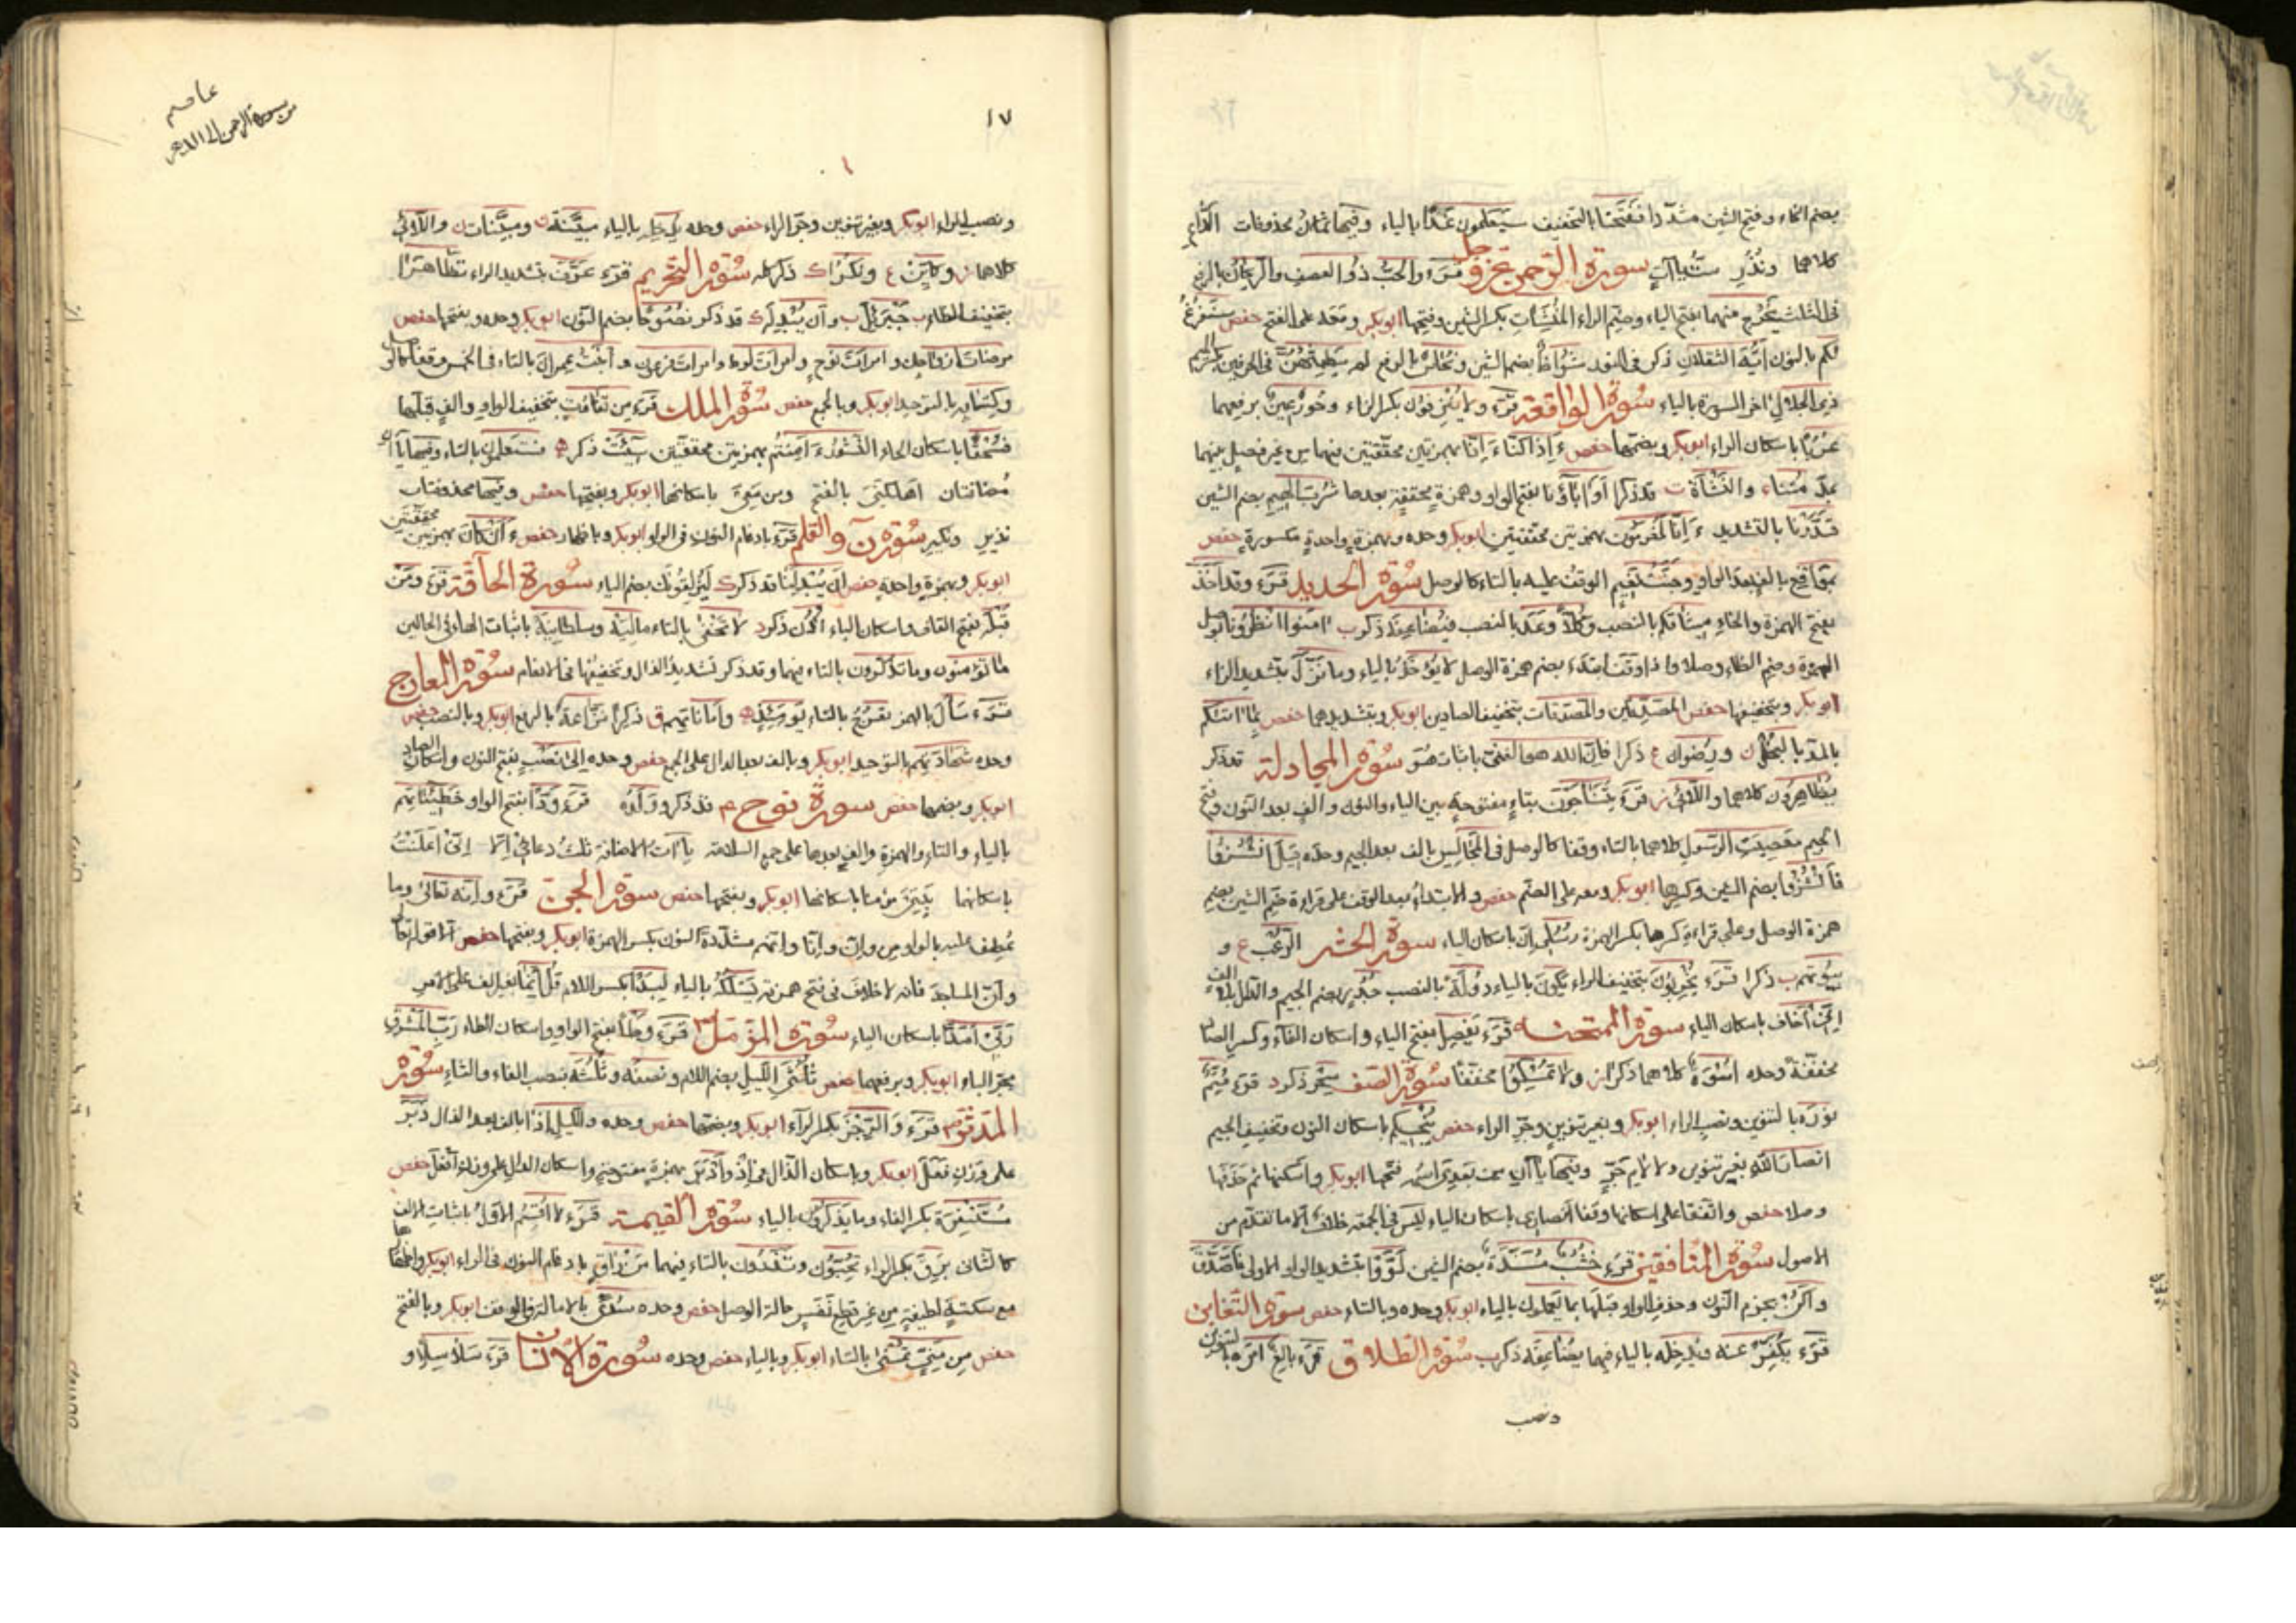 بضم الخاء وفتح الشين مشددا ففتحنا بالتخفيف سيعلمون غدًا بالياء وفيها ثمان محذوفات الدّاع
كلاهما ونُذُرِ ستّ ياآتٍ سورة الرحمن عز وجل قرء والحبّ ذُو العصفِ والريحانُ بالرفع
فى الثلث يَخْرج منهما بفتح الياء وضم الراء المنشَآت بكسر الشين وفتحها ابوبكر ومعه على الفتح حفص سنفرغ
لكم بالنون ايّه الثقلان ذكر فى النور شُوَاظٌ بضم الشين ونُحاسٌ بالرفع لم يطمِثهنّ فى الحرفين بكسر الميم
ذى الجلال اخر السورة بالياء سورة الواقعة قرء ولا يُنزِفون بكسر الزاء وحُورٌ عينٌ برفعهما
عُرْبًا باسكان الراء ابوبكر وبضمها حفص ءَاِذا كنّا ءَاِنّا بهمزتين محققتين فيهما من غير فصل بينهما
مِتْنا والنَشْأة قد ذكرا اَوَ اٰبَاؤنا بفتح الواو وهمزة محققة بعدها شُربَ الهِيم بضم الشين
قدَّرْنا بالتشديد ءَاِنّا لَمُغْرَمُون بهمزتين محققتين ابوبكر وحده وبهمزة واحدة مكسورة حفص
بمَوَاقِع بالف بعد الواو وجَنّت نعيم الوقف عليه بالتاء كالوصل سورة الحديد قرء وقد اَخَذَ
بفتح الهمزة والخاء ميثاقكم بالنصب وكلًّا وعد بالنصب فيُضاعِفَه ذكر اٰمنوا انظرونا بوصل
الهمزة وضم الظاء وصلا واذا وقفا ابتدء بضم همزة الوصل لا يُؤخذُ بالياء وما نزّل بتشديد الزاء
ابوبكر وبتخفيفها حفص المصدّقين والمصدّقات بتخفيف الصادين ابوبكر وبتشديدهما حفص بما اٰتيكم
بالمدّ بالبُخْل ورُضوان ذكرا فانّ الله هو الغنىّ باثبات هُوَ سورة المجادلة قد ذكر
يُظاهِرُون كلاهما واللّائى قرء يَتَنَاجَوْن بتاء مفتوحة بين الياء والنون والف بعد النون وفتح
الجيم معصيت الرسول كلاهما بالتاء وقفا كالوصل فى المَجَالِس بالف بعد الجيم وحده قيل انشُزوا
فَانْشُزُوا بضم الشين وكسرها ابوبكر ومعه على الضم حفص والابتداء بعد الوقف على قراءة ضم الشين بضم
همزة الوصل وعلى قراءة كسرها بكسر الهمزة رُسُلى اِنّ باسكان الياء سورة الحشر الرعْب و
بيُوتهم ذكرا قرء يُخْرِبُون بتخفيف الراء يكونَ بالياء دُولَةً بالنصب جُدُر بضم الجيم والدال بلا الف
اِنّى اَخاف باسكان الياء سورة الممتحنة قرء يَفْصِل بفتح الياء واسكان الفاء وكسر الصاد
مخففة وحده اُسْوَة كلاهما ذكر ولا تُمْسِكوا مخففا سورة الصف سِحْر ذكر قرء مُتِمٌّ
نورَه بالتنوين ونصب الراء ابوبكر وبغير تنوين وجرّ الراء حفص تُنْجيكم باسكان النون وتخفيف الجيم
انصار الله بغير تنوين ولا لام جرّ وفيها ياآن من بعدى اسمه فتحها ابوبكر واسكنها ثم حذفها
وصلا حفص واتفقا على اسكانها وقفا انصارى باسكان الياء ليس فى الجمعة خلاف الا ما تقدّم من
الاصول سورة المنافقين قرء خُشُبٌ مُسَنَّدة بضم الشين لَوَّوْا بتشديد الواو الاولى فاَصَّدّقَ
واكُنْ بجزم النون وحذف الواو قبلها بما يعملون بالياء ابوبكر وحده وبالتاء حفص سورة التغابن
قرء يُكَفِّر عنه ويُدخِله بالياء فيهما يُضاعِفه ذكر سورة الطلاق قرء بالغٌ امرَه بالتنوين
ونصب
عاصم
من سورة الرحمن الى الدهر
١٧
ونصب الراء ابوبكر وبغير تنوين وجرّ الراء حفص وحده يُدخِله بالياء مبيّنة ومبيّنات واللائى
كلاهما وكأيّن ونُكُرًا ذكر كله سورة التحريم قرء عَرَّف بتشديد الراء تَظَاهَرَا
بتخفيف الظاء جَبْرَئيل وان يُبْدِله قد ذكر نُصُوحًا بضم النون ابوبكر وحده وبفتحها حفص
مرضات ازواجك وامرات نوح وامرات لوط وامرات فرعون وابنت عمران بالتاء فى الخمس وقفا كالوصل
وكِتَابِه بالتوحيد ابوبكر وبالجمع حفص سورة الملك قرء من تفَاوُت بتخفيف الواو والف قبلها
فسُحْقًا باسكان الحاء النُشُور ءَاَمِنتُم بهمزتين محققتين سِيئَتْ ذكر فستعلمون بالتاء وفيها ياآن
مضافتان اَهْلكنىَ بالفتح ومن معِىَ باسكانها ابوبكر وبفتحها حفص وفيها محذوفتان
نذيرِ ونكيرِ سورة نٓ والقلم قرء بادغام النون فى الواو ابوبكر وباظهار حفص ءَاَنْ كانَ بهمزتين محققتين
ابوبكر وبهمزة واحدة حفص ان يُبْدِلَنا قد ذكر لَيُزلِقُونَك بضم الياء سورة الحاقّة قرء ومَنْ
قَبْلَه بفتح القاف واسكان الباء اُذُن ذكر لا تَخْفٰى بالتاء مالِيَه وسلطانِيَه باثبات الهاء فى الحالين
ما تؤمنون وما تذكّرون بالتاء فيهما وقد ذكر تشديد الذال وتخفيفها فى الانعام سورة المعارج
قرء سَأَل بالهمز تعرُجُ بالتاء يومَئِذ واماناتهم ذكرا نزّاعة بالرفع ابوبكر وبالنصب حفص
وحده شهادتهم بالتوحيد ابوبكر وبالف بعد الدال على الجمع حفص وحده الى نَصْب بفتح النون واسكان الصاد
ابوبكر وبضمهما حفص سورة نوح م قد ذكر ووَلَدُه قرء وَدًّا بفتح الواو خطيئاتهم
بالياء والتاء والهمزة والف بعدها على جمع السلامة ياآت الاضافة ثلث دعائى اِلّا اِنّى اَعلنْتُ
باسكانهما بَيْتِىَ مؤمنا باسكانها ابوبكر وبفتحها حفص سورة الجنّ قرء وانّه تعالى وما
عُطِف عليه بالواو من وانّ وانّا وانّهم مشدّدة النون بكسر الهمزة ابوبكر وبفتحها حفص الا قوله تعالى
وانّ المساجد فانه لا خلاف فى فتح همزته يَسْلُكْهُ بالياء لِبَدًا بكسر اللام قُل انّما بغير الف على الامر
ربّى اَمَدًا باسكان الياء سورة المزمّل قرء وَطْأً بفتح الواو واسكان الطاء ربِّ المشرق
بجرّ الباء ابوبكر وبرفعها حفص ثُلُثَىِ الّليل بضم اللام ونصفَه وثُلُثَه بنصب الفاء والثاء سورة
المدّثر قرء والرِّجْزَ بكسر الرآء ابوبكر وبضمها حفص وحده والليل اذَا بالف بعد الذال دَبَرَ
على وزن فَعَلَ ابوبكر وباسكان الذال من اِذْ واَدْبَرَ بهمزة مفتوحة واسكان الدال على وزن اَفْعَلَ حفص
مُسْتَنْفِرَة بكسر الفاء وما يَذْكرون بالياء سورة القيمة قرء لا اُقْسِمُ الاول باثبات الالف
كالثانى بَرِقَ بكسر الراء تُحِبّون وتَذَرُون بالتاء فيهما مَنْ راقٍ بادغام النون فى الراء ابوبكر واظهرها
مع سكتة لطيفة من غير قطع نَفَسٍ حالة الوصل حفص وحده سُدًى بالامالة فى الوقف ابوبكر وبالفتح
حفص من مَنِىٍّ تُمْنٰى بالتاء ابوبكر وبالياء حفص وحده سورة الانسان قرء سَلٰسِلًا و